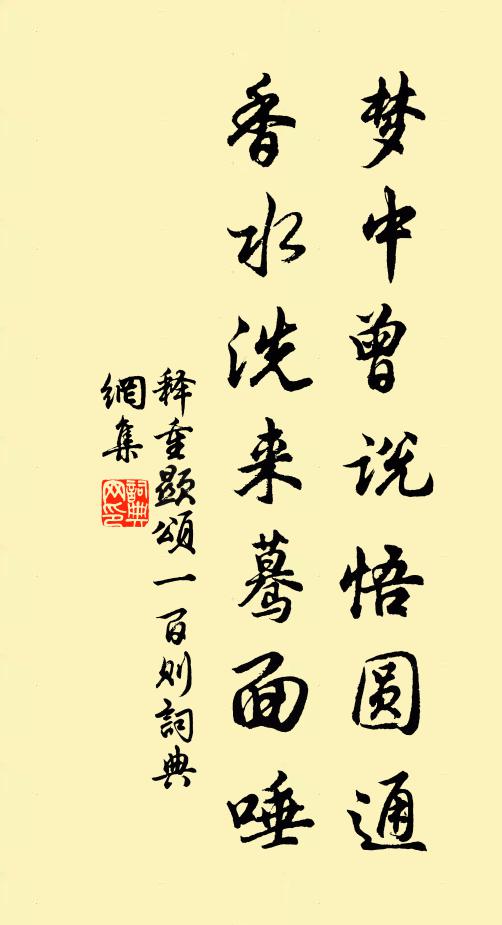 梦中曾说悟圆通
香水洗来蓦面唾
释重显頌一百则詞典
網集
詞典网印